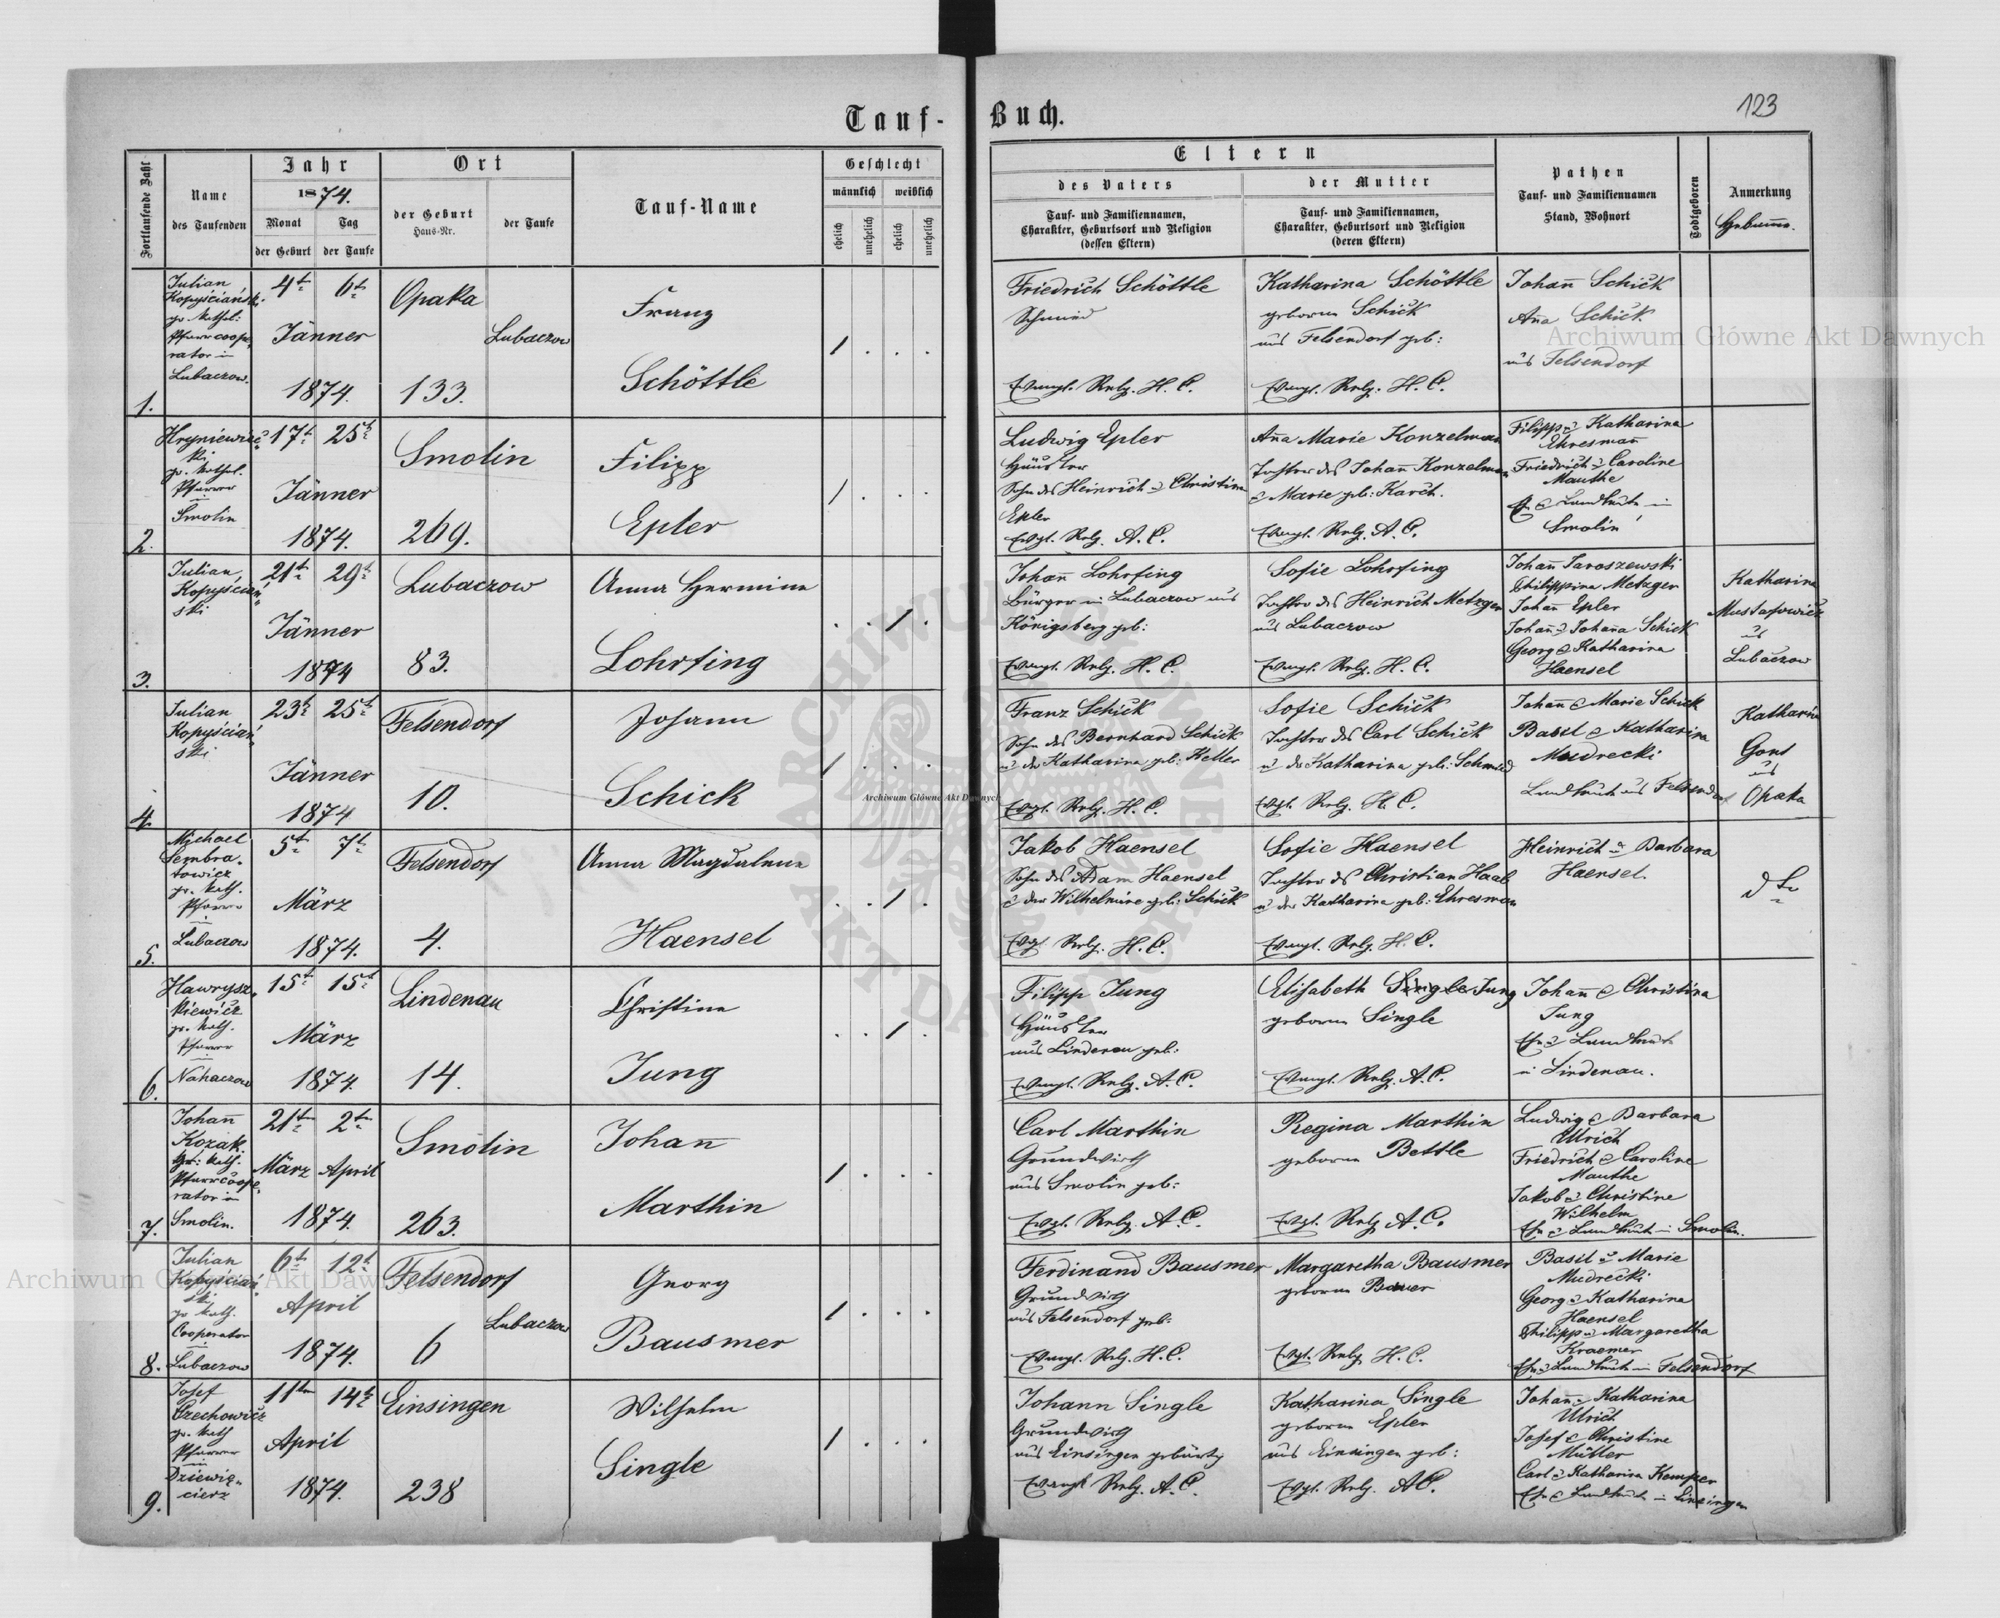 Tauf-Buch.
123
Fortlaufende Zahl
Name
des Taufenden
Jahr
1874.
Monat
der Geburt
Tag
der Taufe
Ort
der Geburt
Haus-Nr.
der Taufe
Tauf-Name
Geschlecht
männlich
weiblich
ehelich
unehelich
ehelich
unehelich
Eltern
des Vaters
Tauf- und Familiennamen,
Charakter, Geburtsort und Religion
(dessen Eltern)
der Mutter
Tauf- und Familiennamen,
Charakter, Geburtsort und Religion
(deren Eltern)
Pathen
Tauf- und Familiennamen
Stand, Wohnort
Todtgeboren
Anmerkung
Hebamme.
1.
Julian
Kopyściański
gr. kathol:
Pfarrcoope-
rator in
Lubaczow.
4t 6t
Jänner
1874.
Opaka
133.
Lubaczow
Franz
Schöttle
1 . . .
Friedrich Schöttle
Schmied
Evangl. Relg. H. C.
Katharina Schöttle
geborne Schick
aus Felsendorf geb:
Evangl. Relg. H. C.
Johan̅ Schick
An̅a Schick
aus Felsendorf
2.
Hryniewiec-
ki
gr. kathol.
Pfarrer
in
Smolin
17t 25t
Jänner
1874.
Smolin
269.
Filipp
Epler
1 . . .
Ludwig Epler
Häusler
Sohn des Heinrich & Christina
Epler
Evgl. Relg. A. C.
An̅a Marie Konzelman
Tochter des Johan̅ Konzelman
& Marie geb: Karch.
Evangl. Relg. A. C.
Filipp & Katharina
Ehresman̅
Friedrich & Caroline
Mauthe
Landleute in
Smolin
3.
Julian
Kopyściań-
ski
21t 29t
Jänner
1874
Lubaczow
83.
Anna Hermine
Lohrfing
. . 1 .
Johan̅ Lohrfing
Bürger in Lubaczow aus
Königsberg geb:
Evangl. Relg. H. C.
Sofie Lohrfing
Tochter des Heinrich Metzger
aus Lubaczow
Evangl. Relg. H. C.
Johan̅ Jaroszewski
Philippina Metzger
Johan̅ Epler
Johan̅ & Johan̅a Schick
Georg & Katharina
Haensel
Katharina
aus
Lubaczow
4.
Julian
Kopyściań-
ski
23t 25t
Jänner
1874
Felsendorf
10.
Johann
Schick
1 . . .
Franz Schick
Sohn des Bernhard Schick
u der Katharina geb: Keller
Evgl. Relg. H. C.
Sofie Schick
Tochter des Carl Schick
u der Katharina geb: Schmied
Evgl. Relg. H. C.
Johan̅ & Marie Schick
Basil & Katharina
Mudrecki
Landleute aus Felsendorf
Katharina
aus
Opaka
5.
Michael
Sembra-
towicz
gr. kath.
Pfarrer
in
Lubaczow
5t 7t
März
1874.
Felsendorf
4.
Anna Magdalena
Haensel
. . 1 .
Jakob Haensel
Sohn des Adam Haensel
& der Wilhelmine geb: Schick
Evgl. Relg. H. C.
Sofie Haensel
Tochter des Christian Haab
u der Katharina geb: Ehresman
Evangl. Relg. H. C.
Heinrich u Barbara
Haensel.
6.
Hawrysz-
kiewicz
gr. kath.
Pfarrer
in
Nahaczow
15t 15t
März
1874.
Lindenau
14.
Christine
Jung
. . 1 .
Filipp Jung
Häusler
aus Lindenau geb:
Evangl. Relg. A. C.
Elisabeth Single Jung
geborne Single
Evangl. Relg. A. C.
Johan̅ & Christina
Jung
Landleute
in Lindenau.
7.
Johan̅
Kozak
gr: kath.
Pfarrcoope-
rator in
Smolin.
21t 2t
März April
1874.
Smolin
263.
Johan̅
Marthin
1 . . .
Carl Marthin
Grundwirth
aus Smolin geb:
Evgl. Relg. A. C.
Regina Marthin
geborne Bettle
Evgl. Relg. A. C.
Ludwig & Barbara
Ulrich
Friedrich & Caroline
Mauthe
Jakob & Christine
Wilhelm
Landleute in Smolin.
8.
Julian
Kopyściań-
ski
gr. kath.
Cooperator
in
Lubaczow
6t 12t
April
1874.
Felsendorf
6
Lubaczow
Georg
Bausmer
1 . . .
Ferdinand Bausmer
Grundwirth
aus Felsendorf geb:
Evangl. Relg. H. C.
Margaretha Bausmer
geborne Bauer
Evgl. Relg. H. C.
Basil & Marie
Mudrecki
Georg & Katharina
Haensel
Philipp & Margaretha
Kraemer
Landleute in Felsendorf
9.
Josef
Czechowicz
gr. kath
Pfarrer
in
Dziewię-
cierz
11t 14t
April
1874.
Einsingen
238
Wilhelm
Single
1 . . .
Johann Single
Grundwirth
aus Einsingen gebürtig
Evangl. Relg. A. C.
Katharina Single
geborne Epler
aus Einsingen geb:
Evgl. Relg. A C.
Johan̅ & Katharina
Ulrich
Josef & Christine
Müller
Carl & Katharina Kemper
Landleute in Einsingen
Archiwum Główne Akt Dawnych
Archiwum Główne Akt Dawnych
Archiwum Główne Akt Dawnych
ARCHIWUM GŁÓWNE AKT DAWNYCH